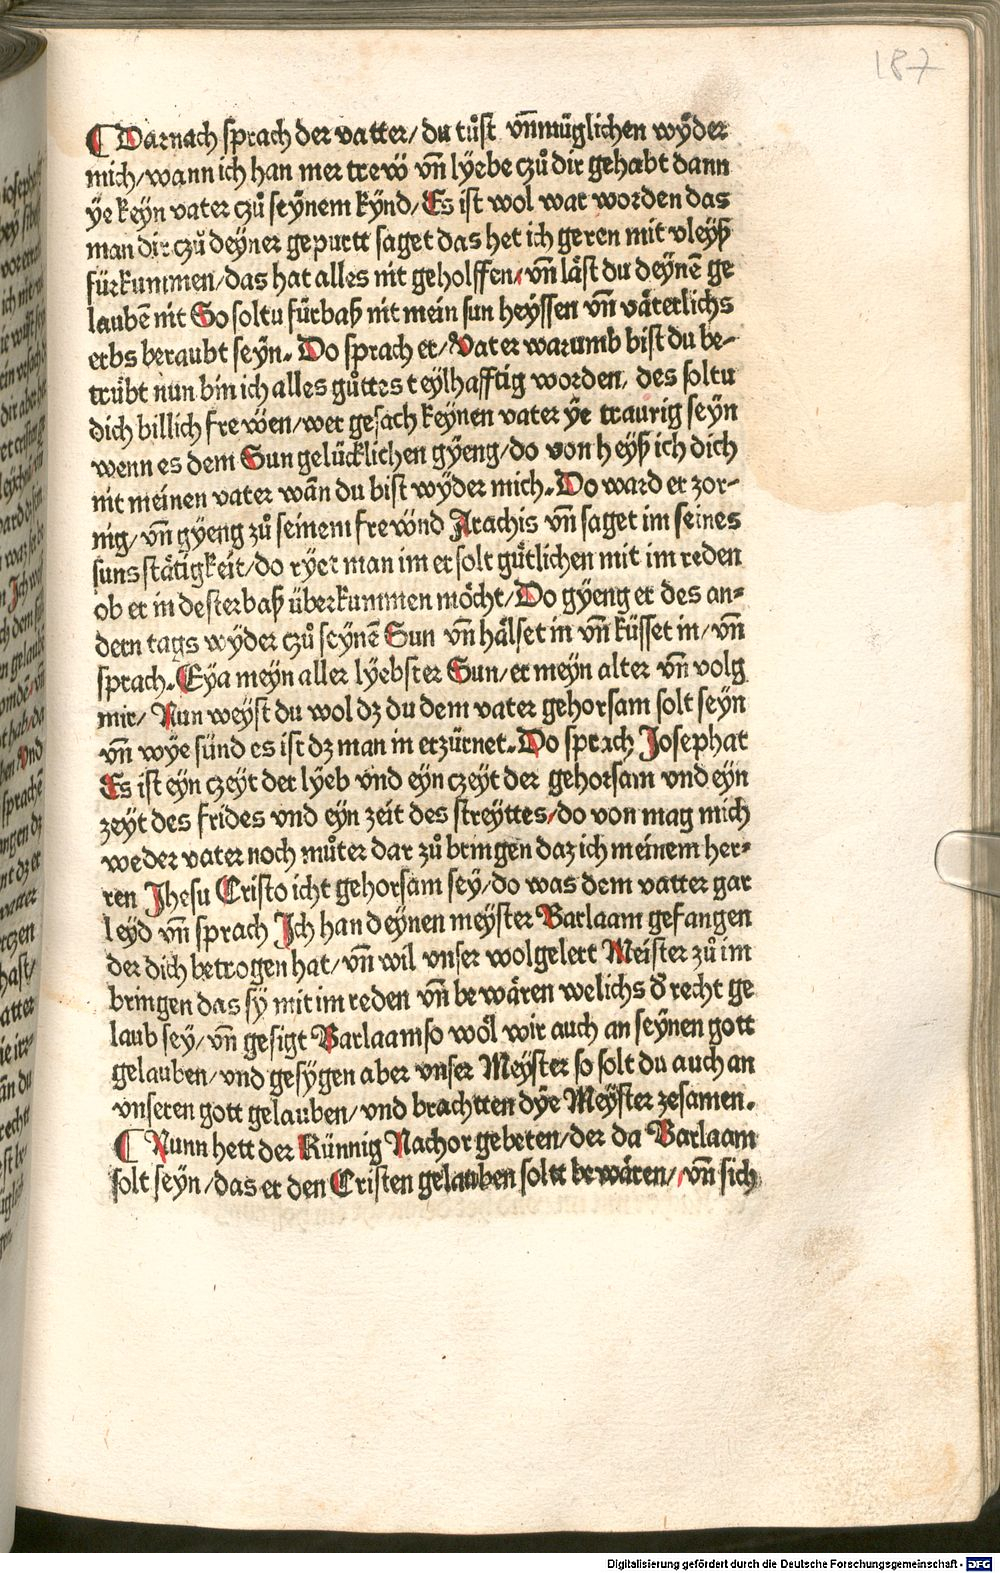 187
¶ Darnach sprach der vatter/ du tůst vñmüglichen wÿder
mich/ wann ich han mer trew̃ vñ lÿebe czů dir gehabt dann
ÿe keÿn vater czů seÿnem kÿnd/ Es ist wol war worden das
man dir czů deÿner gepurtt saget das het ich geren mit vleÿß
fürkummen/ das hat alles nit geholffen/ vñ läst du deÿnẽ ge
laubẽ nit So soltu fürbaß nit mein sun heÿssen vñ väterlichs
erbs beraubt seÿn. Do sprach er/ Vater warumb bist du be-
trübt nun bin ich alles gůttes teÿlhafftig worden/ des soltu
dich billich frewen/ wer gesach keÿnen vater ÿe traurig seÿn
wenn es dem Sun gelücklichen gÿeng/ do von heÿß ich dich
nit meinen vater wãn du bist wÿder mich. Do ward er zor-
nig/ vñ gÿeng zů seinem frewnd Arachis vñ saget im seines
suns stätigkeit/ do rÿet man im er solt gütlichen mit im reden
ob er in desterbaß überkummen möcht/ Do gÿeng er des an-
dern tags wÿder czů seÿnẽ Sun vñ hälset in vñ küsset in/ vñ
sprach. Eÿa meÿn aller lÿebster Sun/ er meÿn alter vñ volg
mir/ Nun weÿst du wol dz du dem vater gehorsam solt seÿn
vñ wÿe sünd es ist dz man in erzürnet. Do sprach Josephat
Es ist eÿn czeÿt der lÿeb vnd eÿn czeÿt der gehorsam vnd eÿn
zeÿt des frides vnd eÿn zeit des streÿttes/ do von mag mich
weder vater noch můter dar zů bringen daz ich meinem her-
ren Jhesu Cristo icht gehorsam seÿ/ do was dem vatter gar
leÿd vñ sprach Ich han deÿnen meÿster Barlaam gefangen
der dich betrogen hat/ vñ wil vnser wolgelert Meister zů im
bringen das sÿ mit im reden vñ bewären welichs d̃ recht ge
laub seÿ/ vñ gesigt Barlaam so wöl wir auch an seÿnen gott
gelauben/ vnd gesÿgen aber vnser Meÿster so solt du auch an
vnseren gott gelauben/ vnd brachtten dÿe Meÿster zesamen.
¶ Nunn hett der Künnig Nachor gebeten/ der da Barlaam
solt seÿn/ das er den Cristen gelauben soltt bewären/ vñ sich
Digitalisierung gefördert durch die Deutsche Forschungsgemeinschaft - DFG